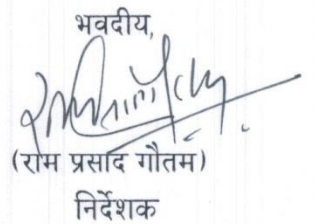 भवदीय,
(राम प्रसाद गौतम)
निर्देशक